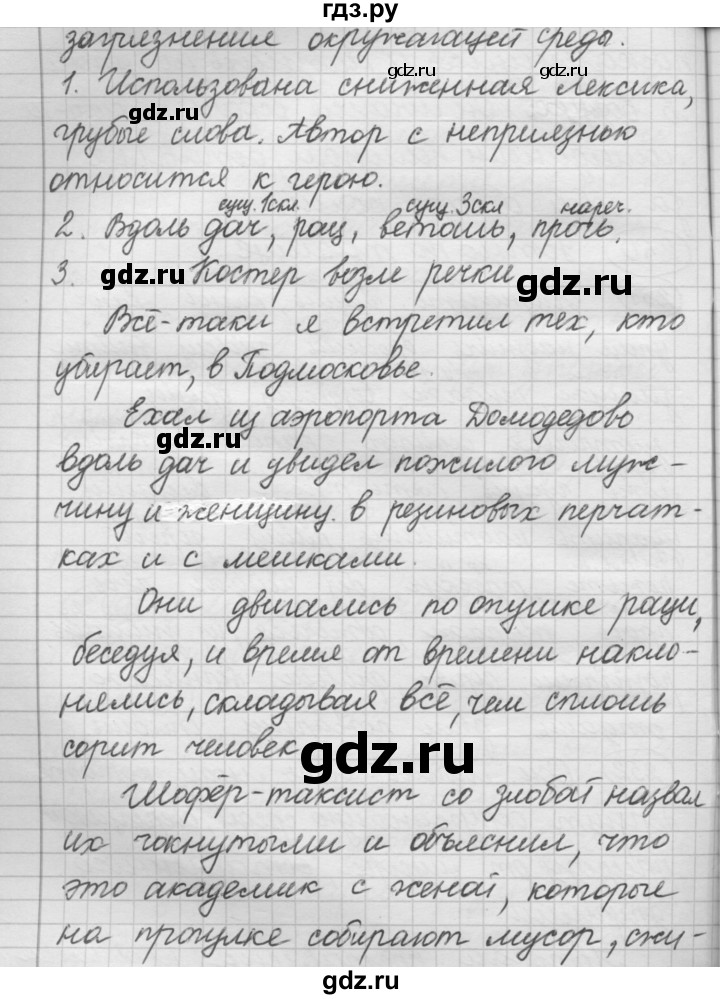 гдз.ру
загрязнения окружающей среды.
gdz.ru gdz.ru
1. Использована сниженная лексика,
gdz.ru
грубые слова. Автор с неприязнью
относится к герою.
сущ. 1скл. сущ. 3скл нареч.
2. Вдоль дач, рощ, ветошь, прочь.
3. gdz.ru Костер возле речки gdz.ru
Всё-таки я встретил тех, кто
убирает, в Подмосковье.
Ехал из аэропорта Домодедово
gdz.ru
вдоль дач и увидел пожилого муж-
чину и женщину в резиновых перчат-
ках и с мешками.
Они двигались по опушке рощи,
беседуя, и время от времени накло-
нялись, складывая всё, чем сплошь
сорит человек
gdz.ru
Шофёр-таксист со злобой назвал
их чокнутыми и объяснил, что
это академик с женой, которые
на прогулке собирают мусор, сжи-
gdz.ru